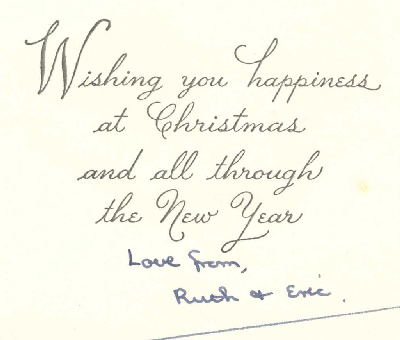 Wishing you happiness
at Christmas
and all through
the New Year
Love from,
Ruth & Eric.